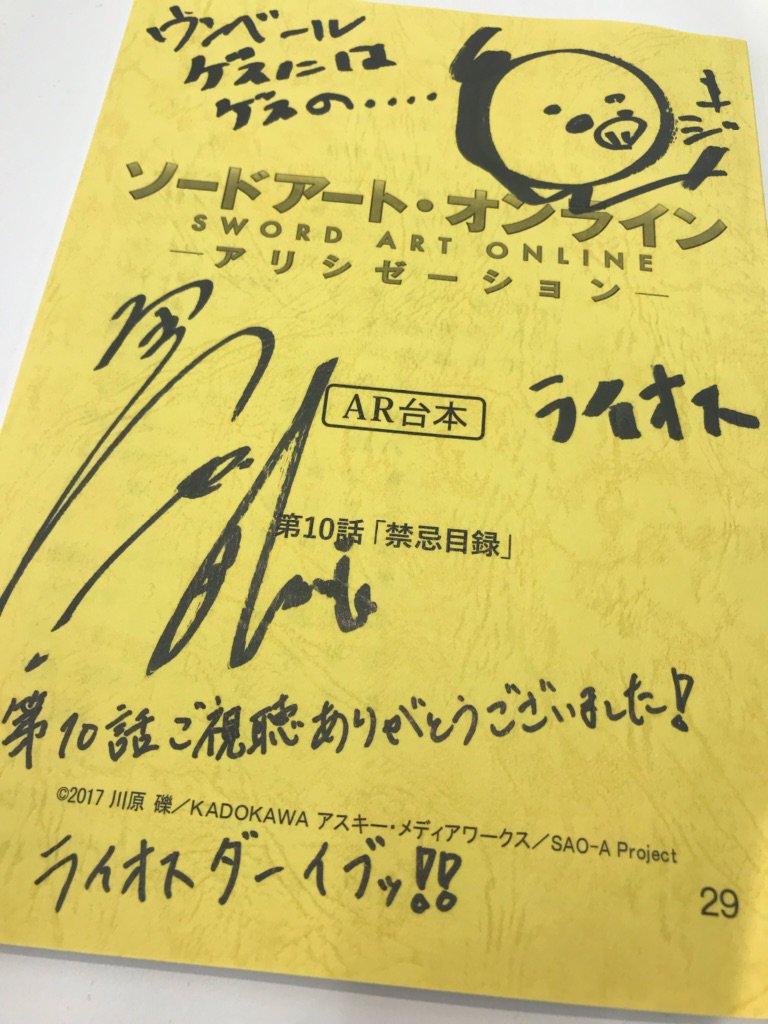 ウンベール
ゲスには
ゲスの・・・・
キジ
ソードアート・オンライン
SWORD ART ONLINE
―アリシゼーション―
AR台本
ライオス
第10話「禁忌目録」
第10話ご視聴ありがとうございました!
©2017 川原 礫／KADOKAWA アスキー・メディアワークス／SAO-A Project
ライオスダーイブッ!!
29